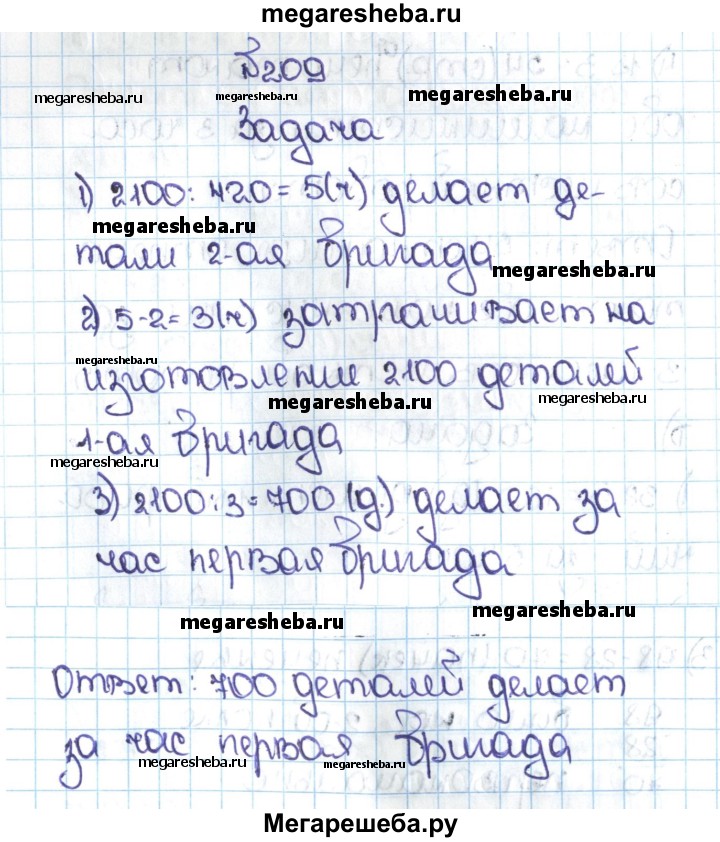 megaresheba.ru
№209
megaresheba.ru megaresheba.ru megaresheba.ru
Задача
1) 2100: 420= 5(ч) делает де-
megaresheba.ru
тали 2-ая бригада
megaresheba.ru
2) 5-2= 3(ч) затрачивает на
megaresheba.ru
изготовление 2100 деталей
megaresheba.ru megaresheba.ru
1-ая бригада
megaresheba.ru
3) 2100:3=700 (д.) делает за
час первая бригада
megaresheba.ru megaresheba.ru
Ответ: 700 деталей делает
за час первая бригада
megaresheba.ru megaresheba.ru
Мегарешеба.ру